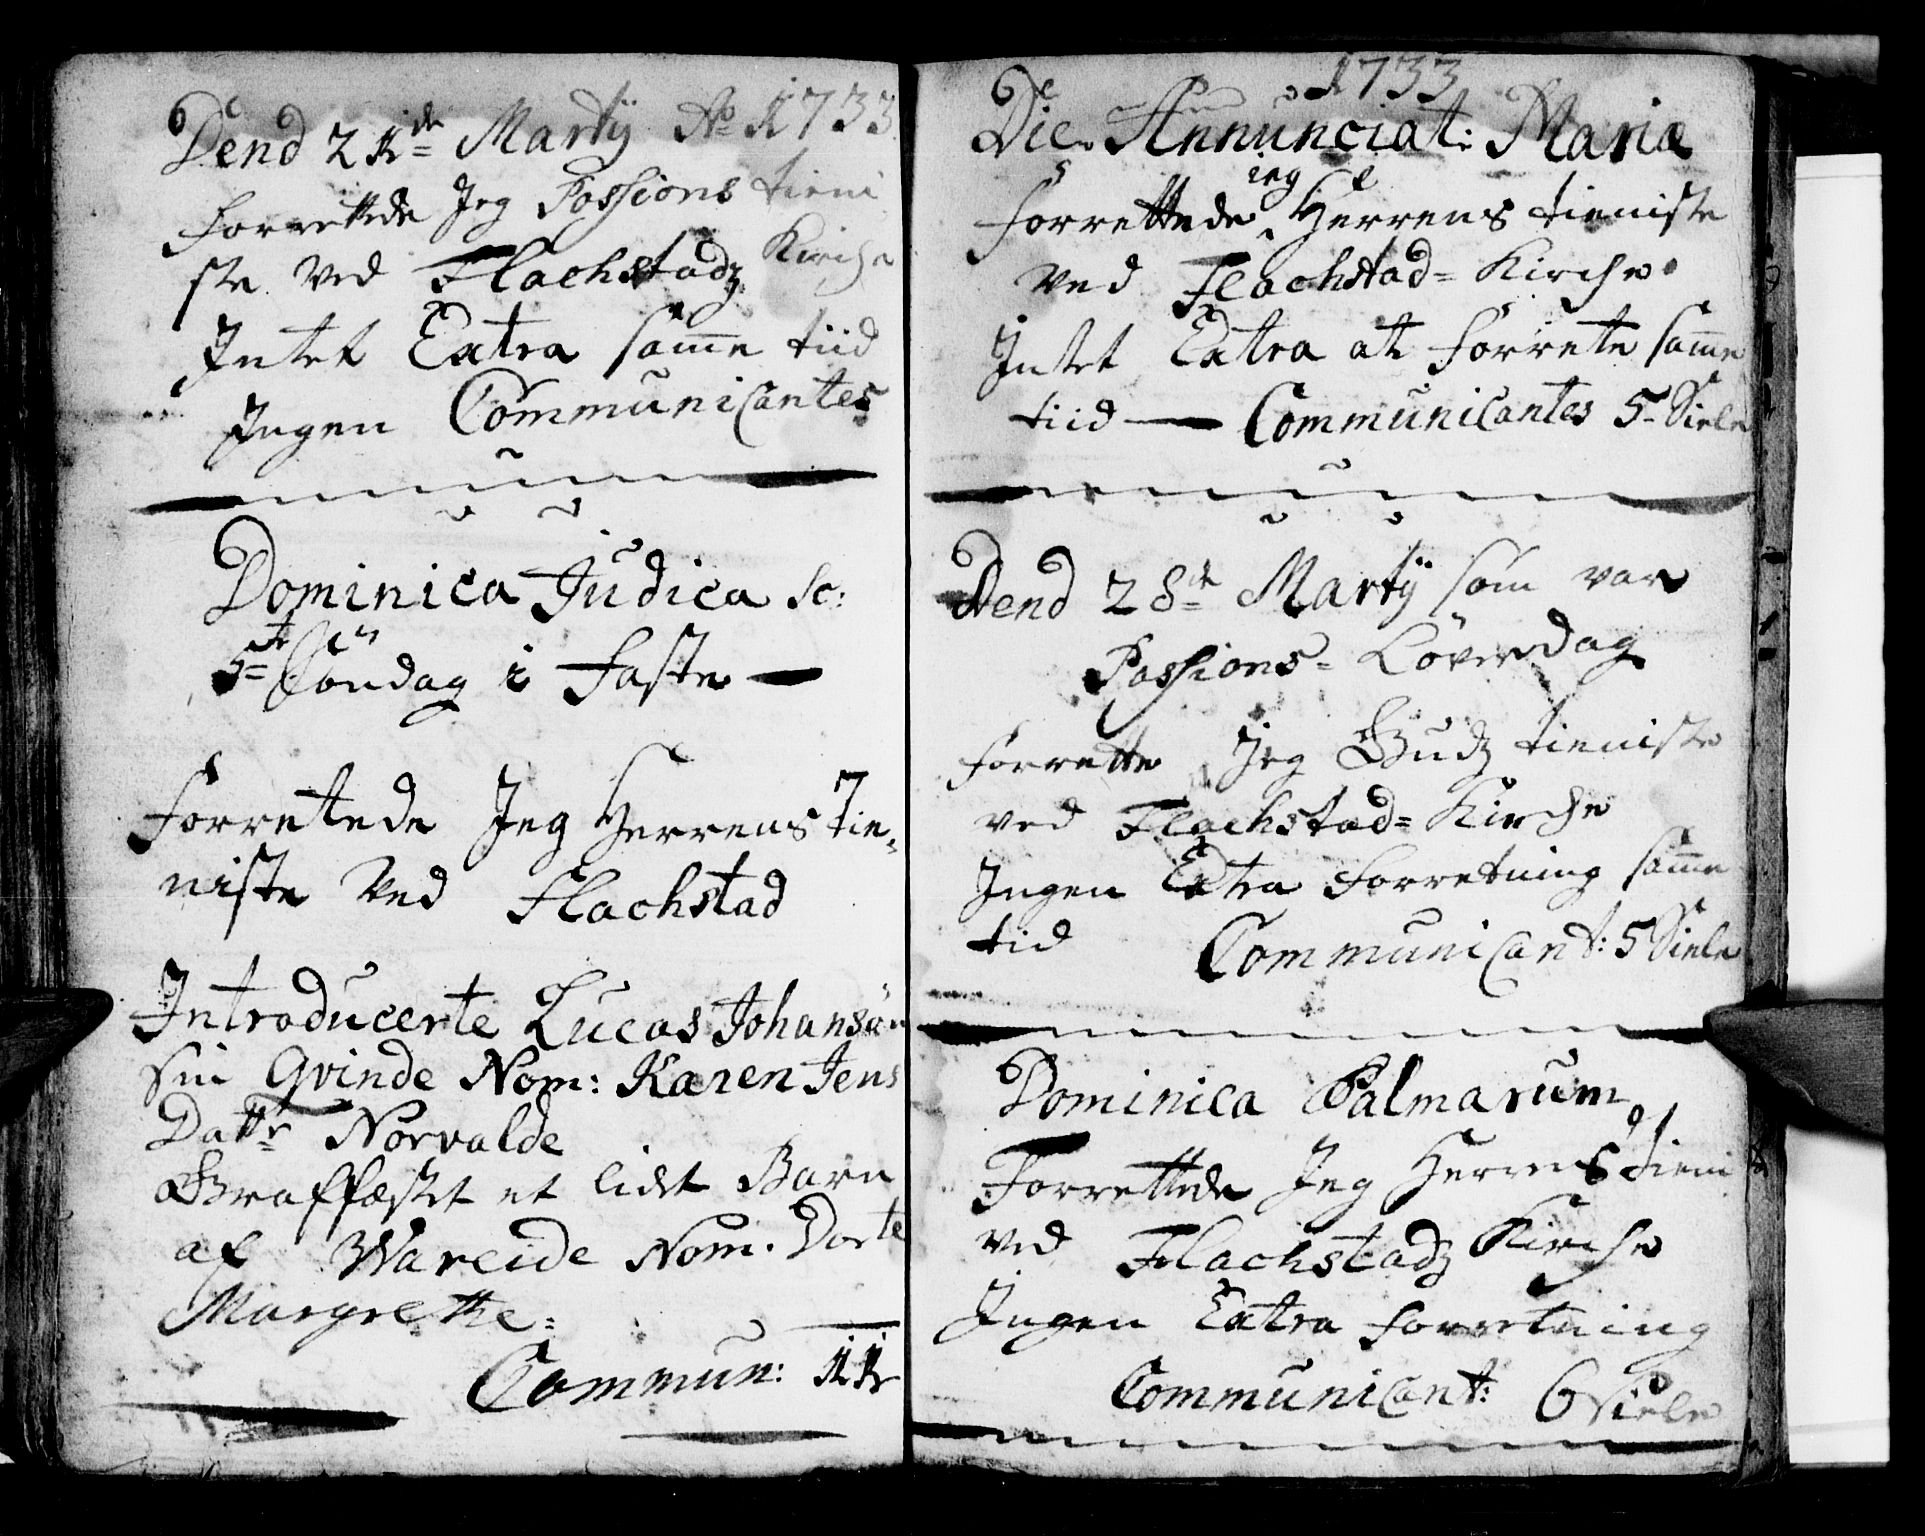 Dend 21de Martij Ao 1733
forrettede Jeg Passions tieni
ste Ved Flachstadz Kirche
Intet Extra samme tiid
Ingen Communicantes
Dominica Judica sc:
5te Søndag i Faste
Forretede Jeg Herrens Tie-
niste Ved Flachstad
Introducerte Lucas Johansøn
sin Qvinde Nom: Karen Jens
Dattr Norvalde
Graffæstet et lidet Barn
af Wareide Nom. Dorte
Margrethe:
Commun: 11
1733
Die Annunciat: Mariæ
forrettede ieg Herrens tieniste
ved Flachstad= Kirche
Intet Extra at forrete samme
tiid — Communicantes 5 Siele
Dend 28de Martij som var
Passions= Löverdag
forrette Jeg Gudz tieniste
ved Flachstad= Kirche
Ingen Extra forretning samme
tid Communicant: 5 Siele
Dominica Palmarum
Forrettede Jeg Herrens Tieni
ved Flachstadz Kirche
Ingen Extra forretning
Communicant: 6 Siele